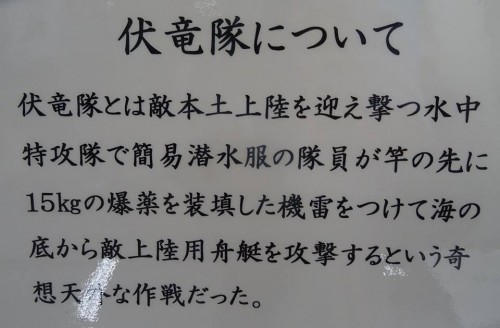 伏竜隊について
伏竜隊とは敵本土上陸を迎え撃つ水中
特攻隊で簡易潜水服の隊員が竿の先に
15kgの爆薬を装填した機雷をつけて海の
底から敵上陸用舟艇を攻撃するという奇
想天外な作戦だった。